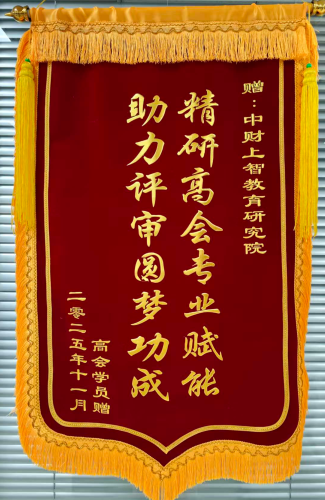 赠：中财上智教育研究院
精研高会专业赋能
助力评审圆梦功成
高会学员赠
二零二五年十一月